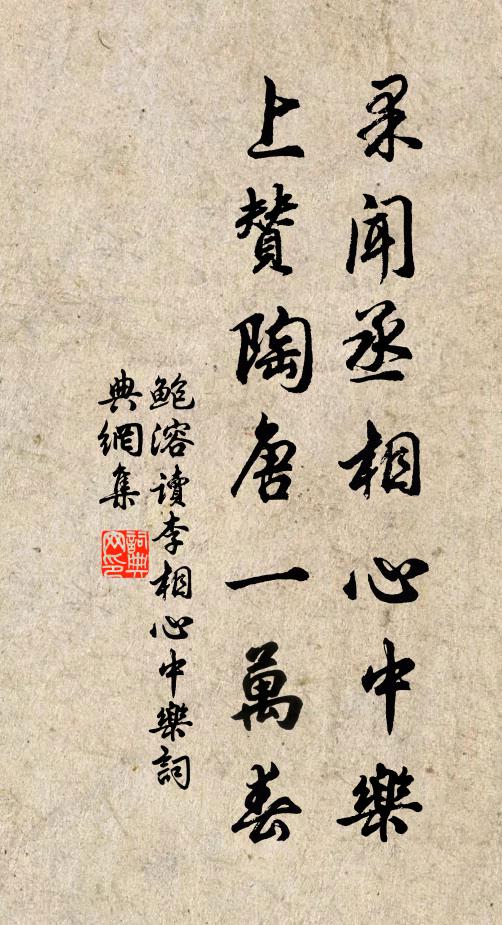 果聞丞相心中樂
上贊陶唐一萬春
鮑溶讀李相心中樂詞
典網集
詞典网印